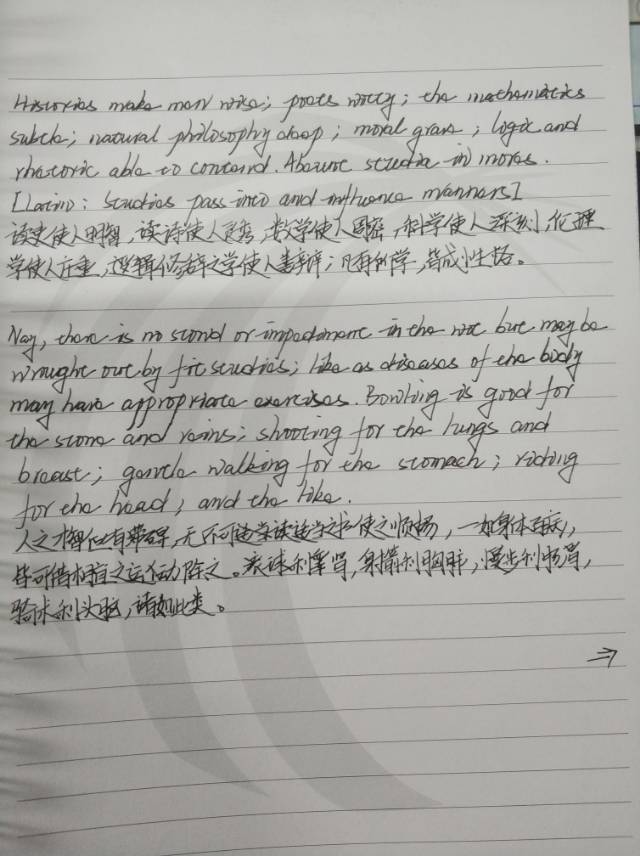 Histories make men wise; poets witty; the mathematics
subtle; natural philosophy deep; moral grave; logic and
rhetoric able to contend. Abeunt studia in mores.
[Latino: Studies pass into and influence manners]
读史使人明智,读诗使人灵秀,数学使人周密,科学使人深刻,伦理
学使人庄重,逻辑修辞之学使人善辩;凡有所学,皆成性格。
Nay, there is no stond or impediment in the wit but may be
wrought out by fit studies; like as diseases of the body
may have appropriate exercises. Bowling is good for
the stone and reins; shooting for the lungs and
breast; gentle walking for the stomach; riding
for the head; and the like.
人之才智但有滞碍,无不可读适当之书使之顺畅,一如身体百病,
皆可借相宜之运动除之。滚球利睾肾,射箭利胸肺,慢步利肠胃,
骑术利头脑,诸如此类。
⇒